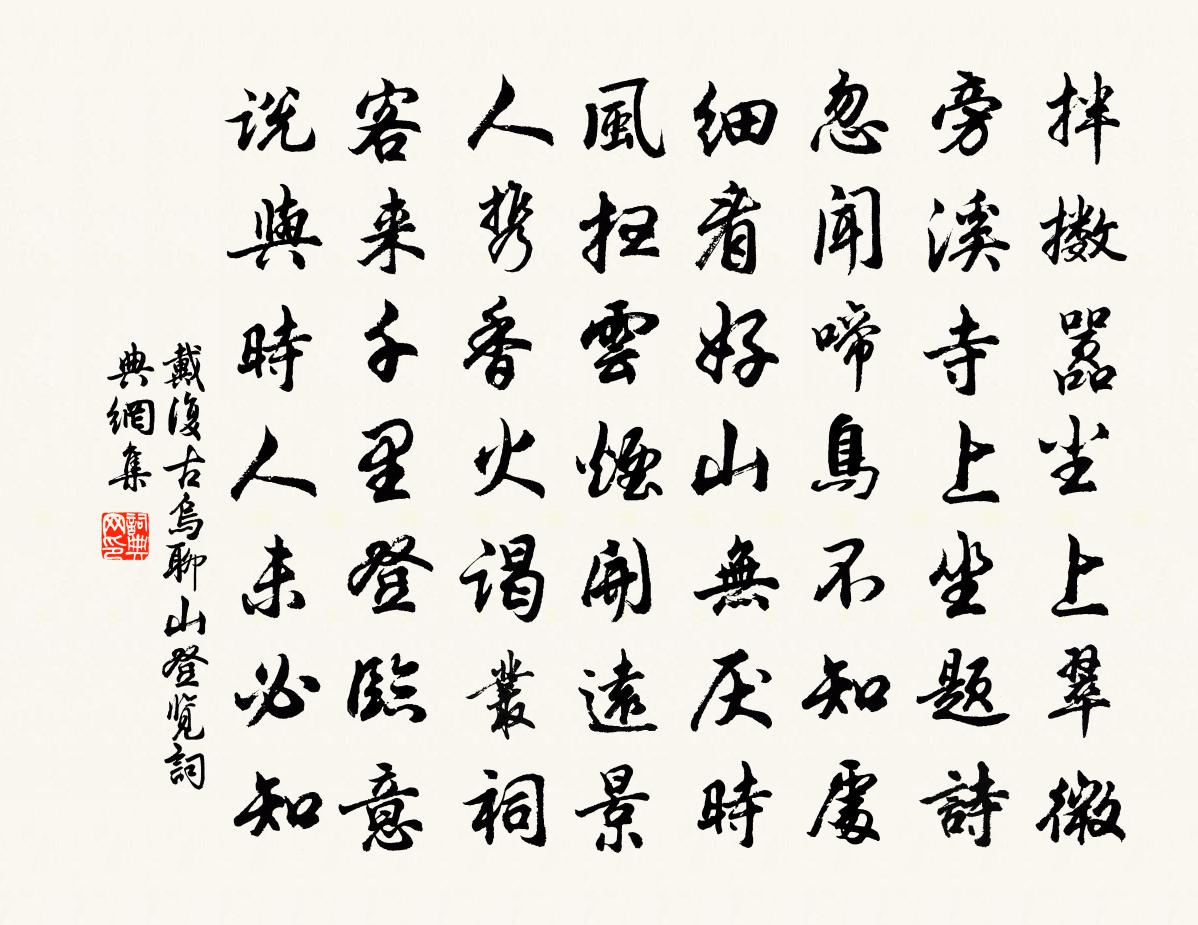 拌擻嚣尘上翠微
旁溪寺上坐题詩
忽闻啼鳥不知處
细看好山無厌時
風扫雲煙開遠景
人携香火谒叢祠
客来千里登臨意
说與時人未必知
戴復古烏聊山登览詞
典網集
詞典
网印